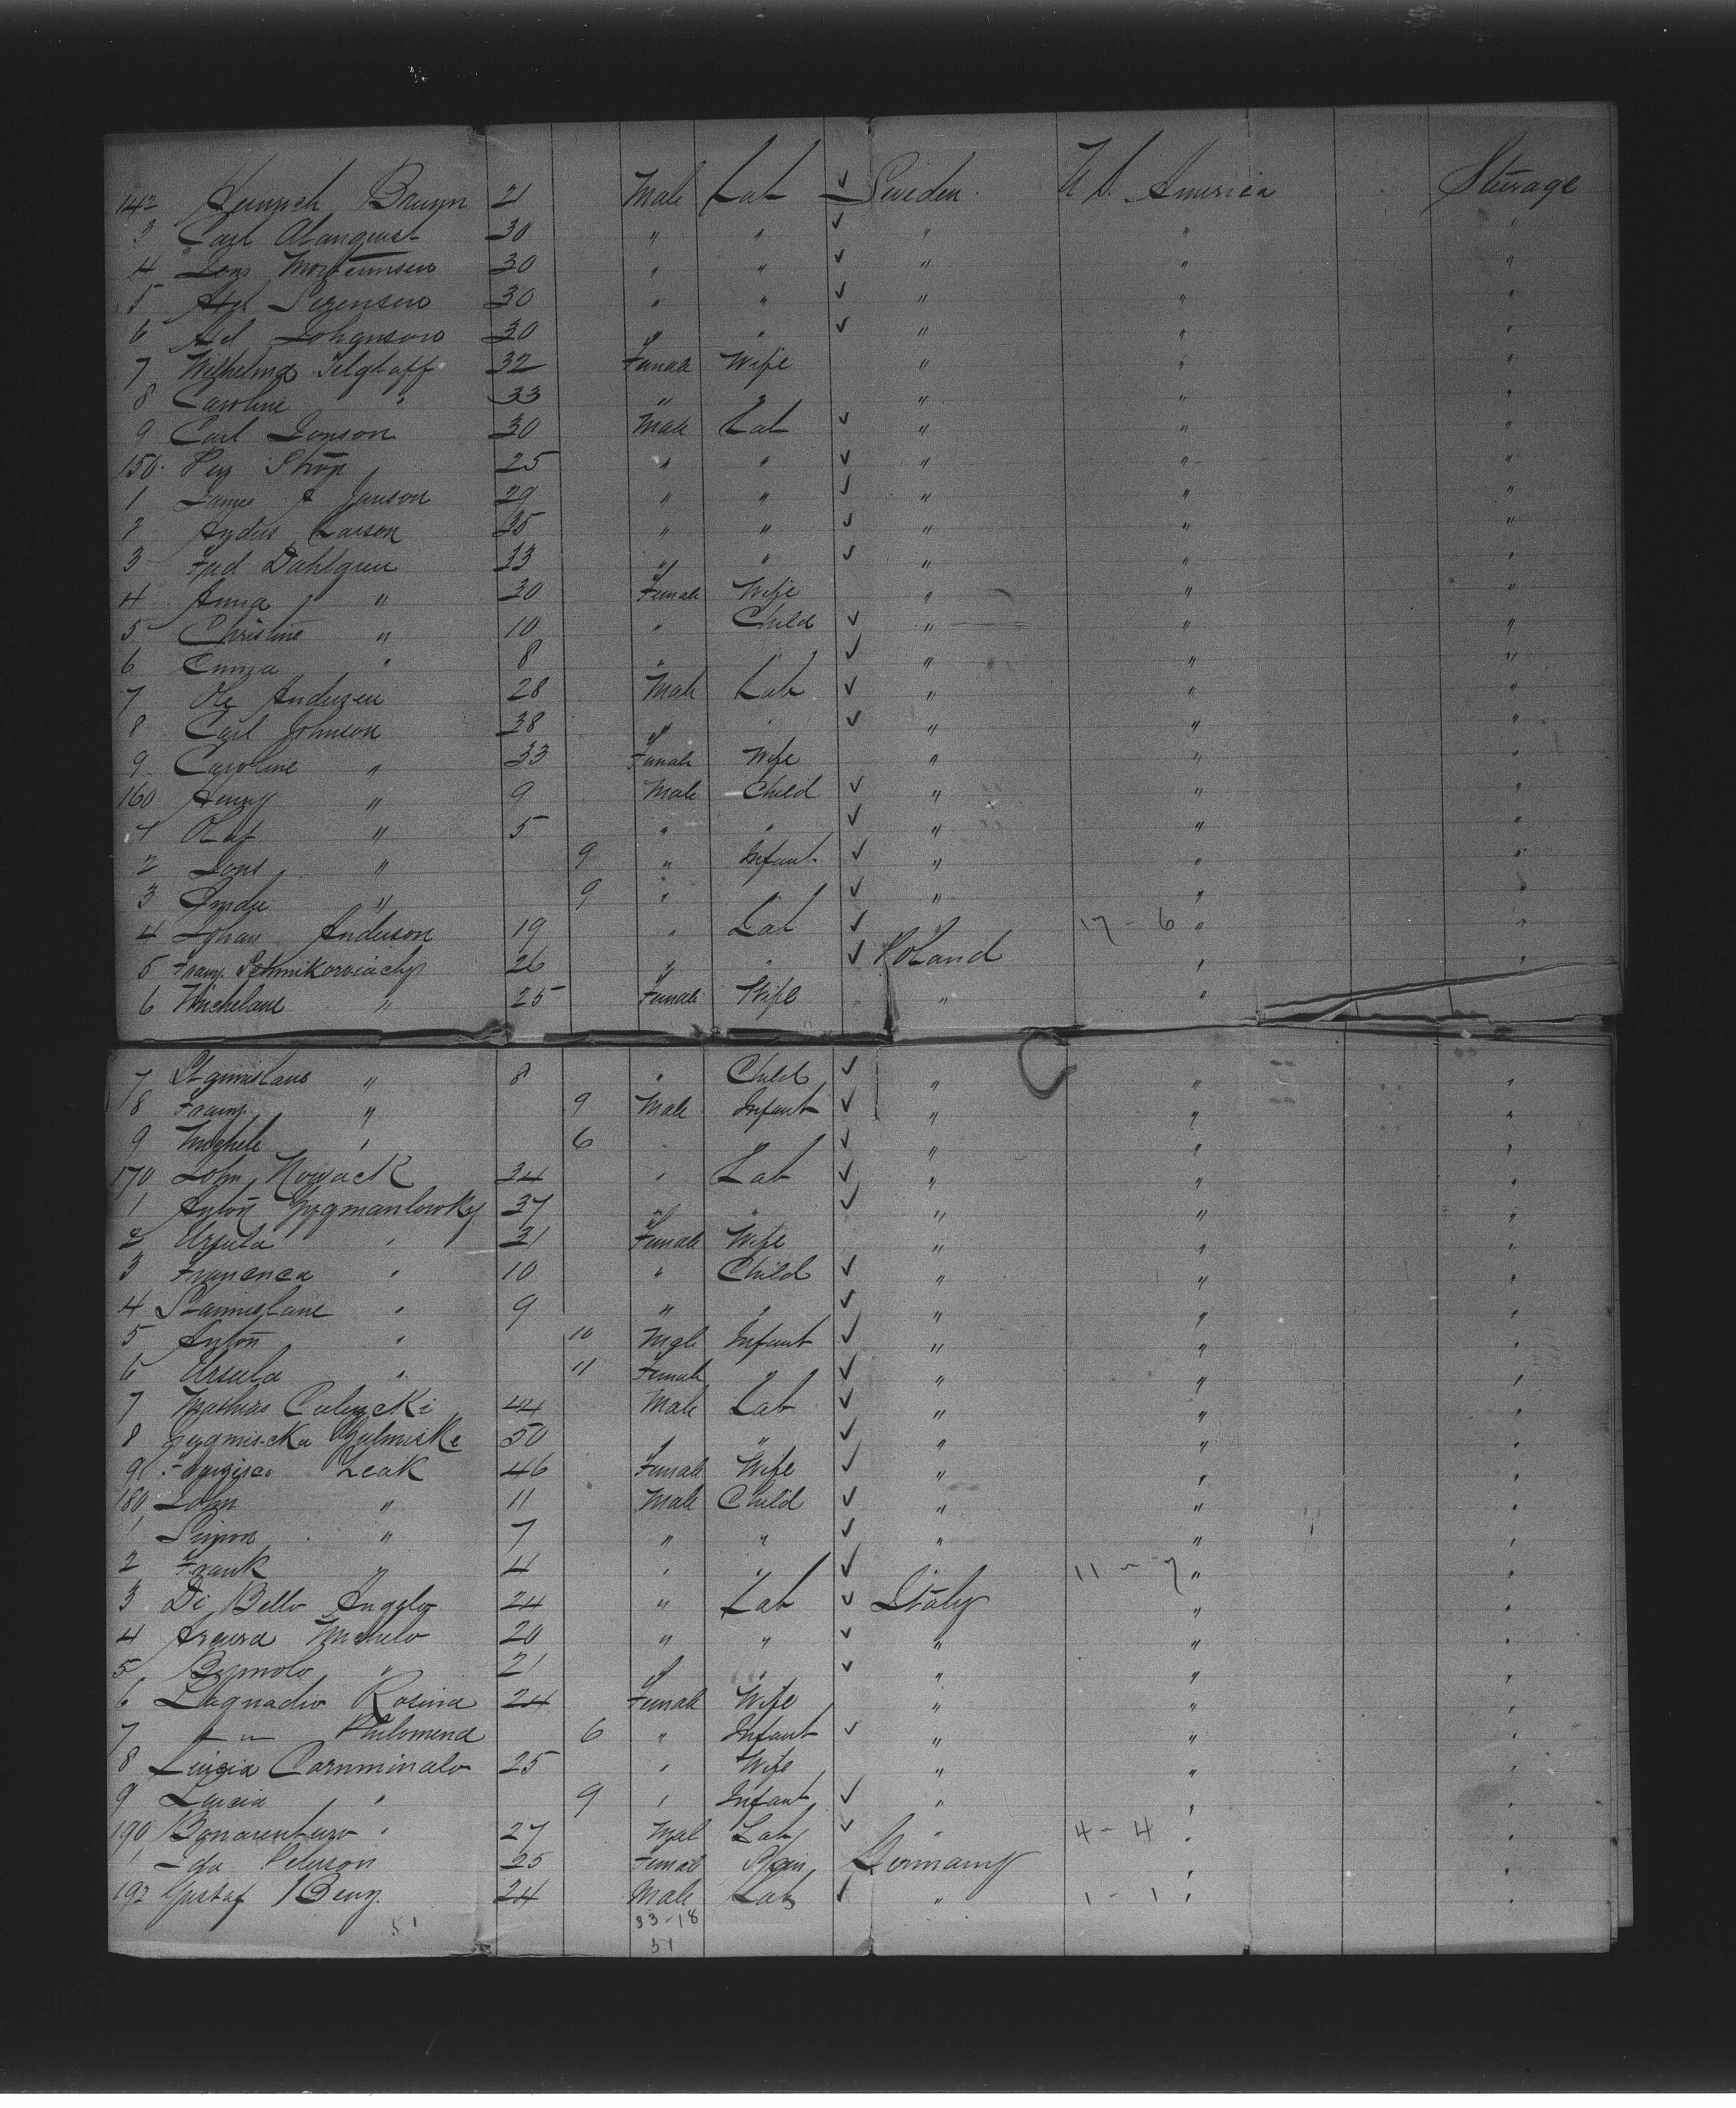 142 Heinrich Bruyn 21 Male Lab ✓ Sweden. U.S. America Sterage
3 Carl Alanquist 30 " " ✓ " " "
4 Jons Mortennsen 30 " " ✓ " " "
5 Axl Serensen 30 " " ✓ " " "
6 Axl Johanson 30 " " ✓ " " "
7 Wilhelmg 32 Female Wife " " "
8 Caroline " 33 " " " " "
9 Carl Jonson 30 Male Lab ✓ " " "
150. 25 " " ✓ " " "
1 James Janson 29 " " ✓ " " "
2 Andus Larson 35 " " ✓ " " "
3 Fred Dahlgren 33 " " ✓ " " "
4 Anna " 30 Female Wife " " "
5 Christine " 10 " Child ✓ " " "
6 Emma " 8 " " ✓ " " "
7 Ole Anderzen 28 Male Lab ✓ " " "
8 Carl Johnson 38 " " ✓ " " "
9 Caroline " 33 Female Wife " " "
160 Henry " 9 Male Child ✓ " " "
1 Olaf " 5 " " ✓ " " "
2 Jons " 9 " Infant. ✓ " " "
3 " 9 " " ✓ " " "
4 Johan Anderson 19 " Lab ✓ " 17 - 6 " "
5 Franz 26 " " ✓ Poland " "
6 " 25 Female Wife " " "
7 Stannislaus " 8 " Child ✓ " " "
8 Franz " 9 Male Infant ✓ " " "
9 Michele " 6 " " ✓ " " "
170 John Nowack 34 " Lab ✓ " " "
1 Anton Zygmanlowky 37 " " ✓ " " "
2 Ursula " 31 Female Wife " " "
3 " 10 " Child ✓ " " "
4 Stannislane " 9 " " ✓ " " "
5 Anton " 10 Male Infant ✓ " " "
6 Ursula " 11 Female " ✓ " " "
7 Mathias 44 Male Lab ✓ " " "
8 50 " " ✓ " " "
9 Zeak 46 Female Wife ✓ " " "
180 John " 11 Male Child ✓ " " "
1 Simon " 7 " " ✓ " " "
2 Frank " 4 " " ✓ " 11 - 7 " "
3 Di Bello Angelo 24 " Lab ✓ Italy " "
4 Michelo 20 " " ✓ " " "
5 " 21 " " ✓ " " "
6 Lagnadio Rosina 24 Female Wife " " "
7 " " Philomena 6 " Infant ✓ " " "
8 Luigia Carnminalo 25 " Wife " " "
9 Lucia " 9 " Infant ✓ " " "
190 Bonarenturo " 27 Mal Lab ✓ " 4 - 4 " "
1 Ida Peterson 25 Female Germany " "
192 Gustaf Beng. 24 Male Lab ✓ " 1 - 1 " "
51 33-18
51